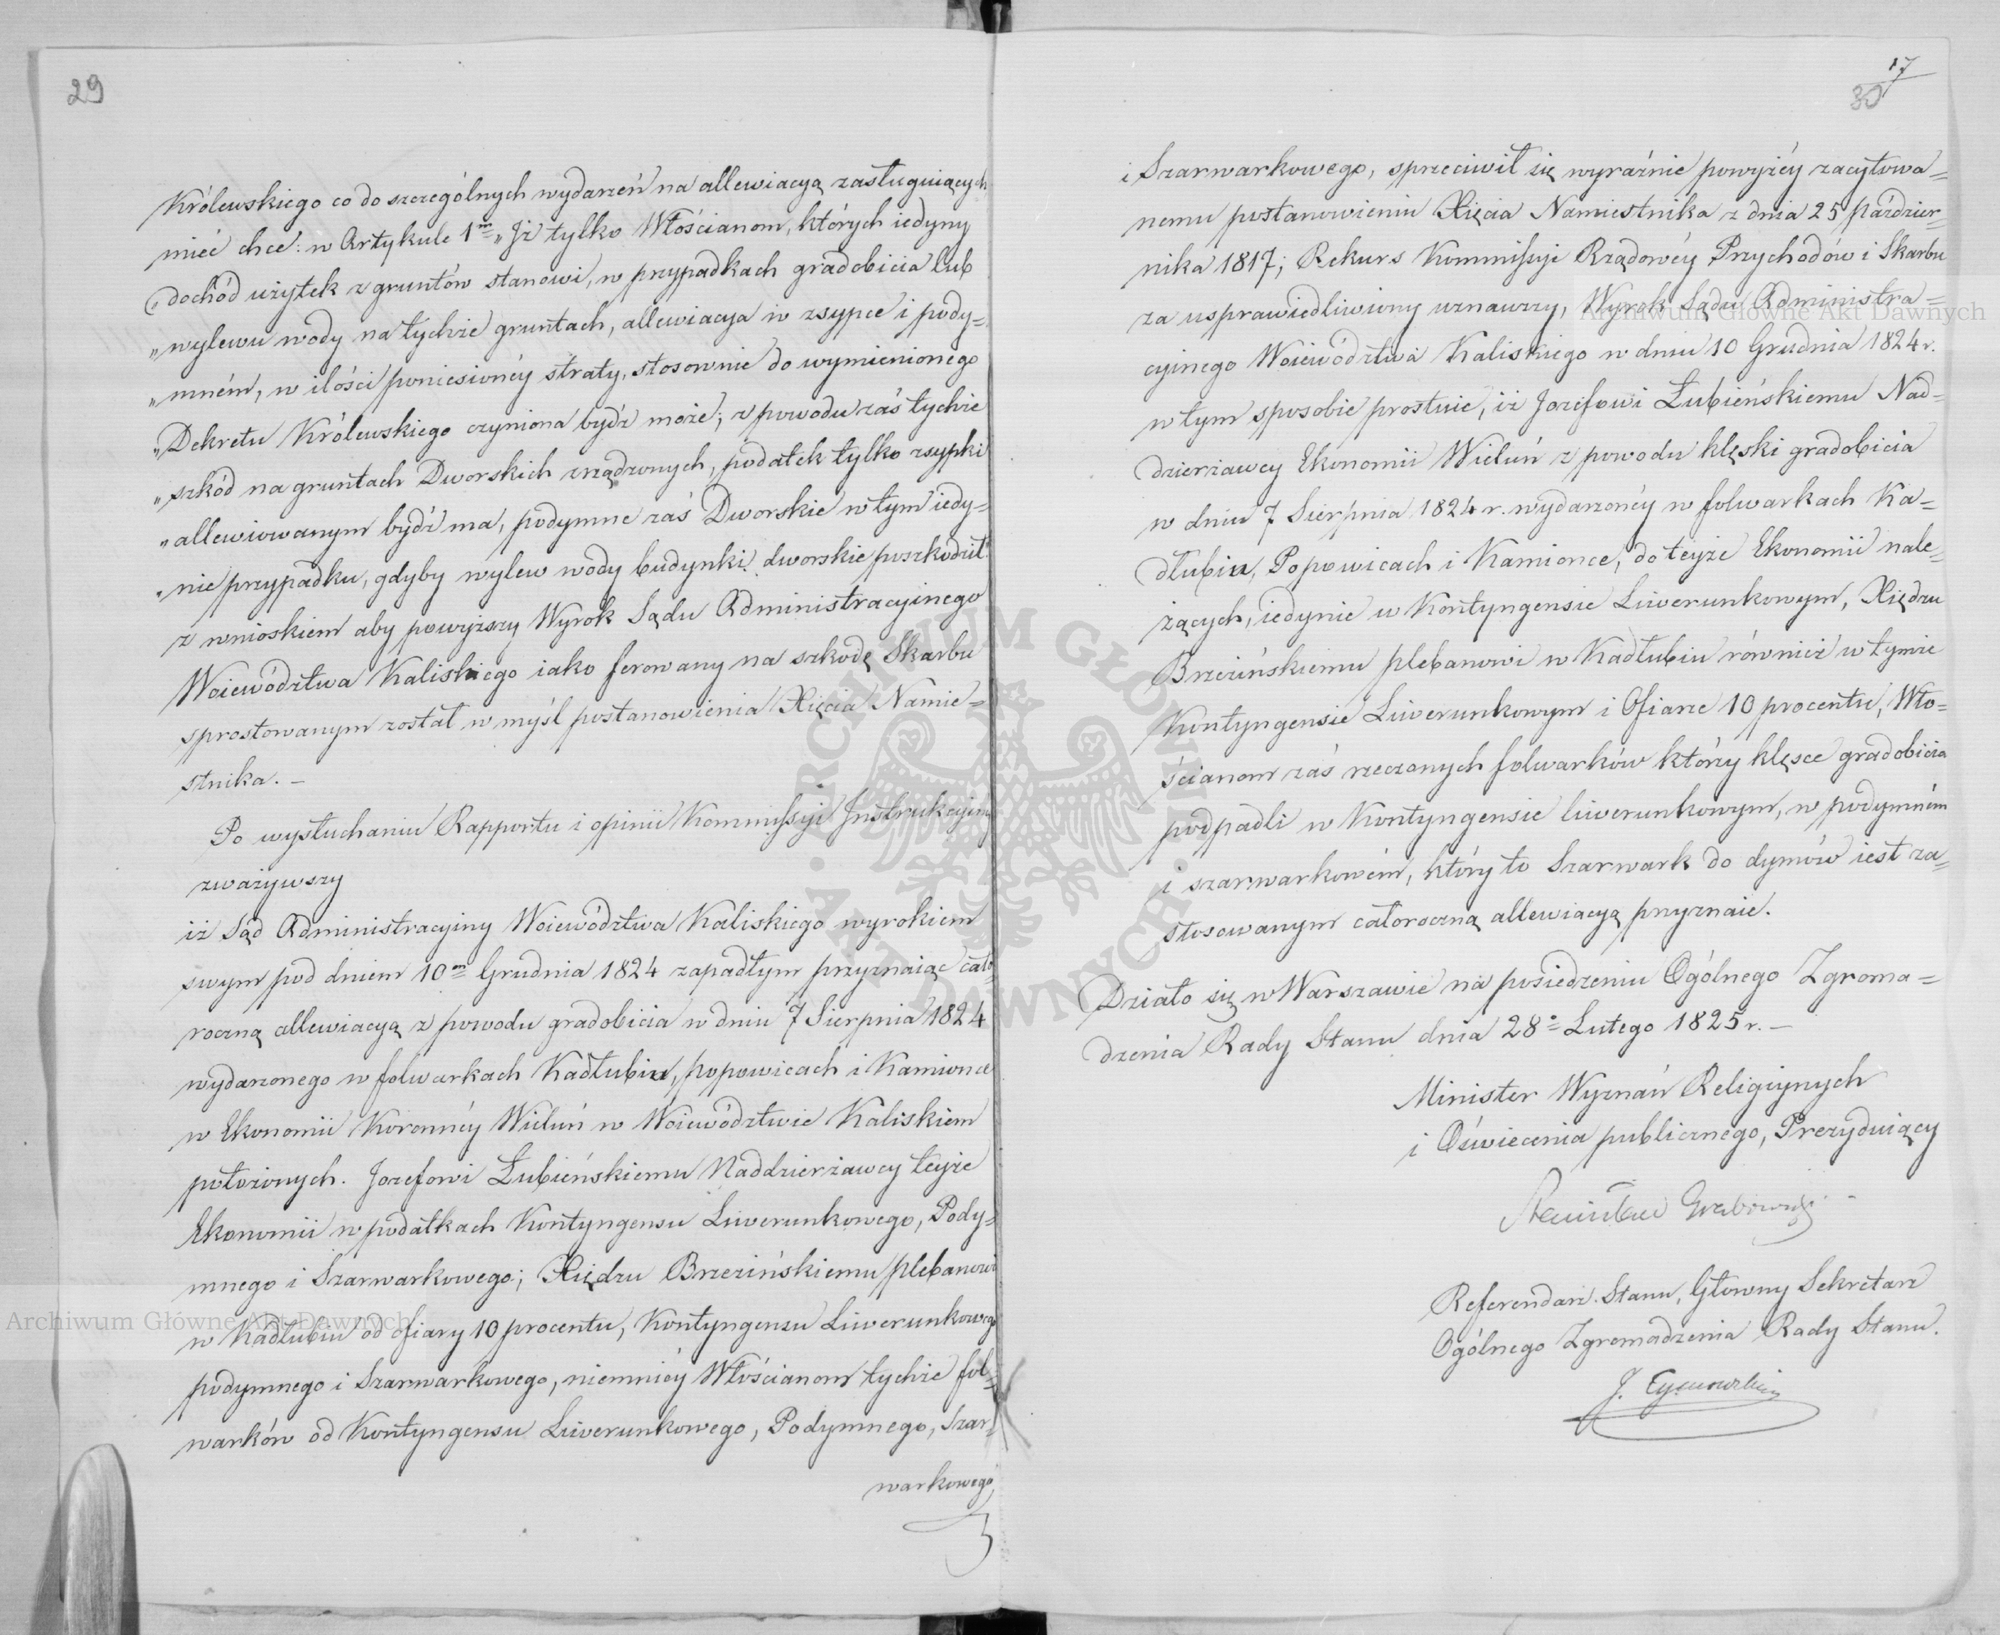 29
Królewskiego co do szczególnych wydarzeń na allewiacyą zasługuiących
mieć chce: w Artykule 1m „Jż tylko Włościanom, których iedyny
„dochód użytek z gruntów stanowi, w przypadkach gradobicia lub
„wylewu wody na tychże gruntach, allewiacya w zsypce i pody=
„mném, w ilości poniesionéy straty, stosownie do wymienionego
„Dekretu Królewskiego czyniona bydź może; z powodu zaś tychże
„szkód na gruntach Dworskich zrządzonych, podatek tylko zsypki
„allewiowanym bydź ma, podymne zaś Dworskie w tym iedy=
„nie przypadku, gdyby wylew wody budynki dworskie poszkodził"
z wnioskiem aby powyższy Wyrok Sądu Administracyinego
Woiewództwa Kaliskiego iako ferowany na szkodę Skarbu
sprostowanym został w myśl postanowienia Xięcia Namie=
stnika. –
Po wysłuchaniu Rapportu i opinii Kommissyi Instrukcyiney
zważywszy
iż Sąd Administracyiny Woiewództwa Kaliskiego wyrokiem
swym pod dniem 10m Grudnia 1824 zapadłym przyznaiąc cało
roczną allewiacyą z powodu gradobicia w dniu 7 Sierpnia 1824
wydarzonego w folwarkach Kadłubiu, Popowicach i Kamionce
w Ekonomii Koronnéy Wieluń w Woiewództwie Kaliskiem
położonych. Jozefowi Łubieńskiemu Naddzierżawcy teyże
Ekonomii w podatkach Kontyngensu Liwerunkowego, Pody=
mnego i Szarwarkowego; Xiędzu Brzezińskiemu plebanowi
w Kadłubiu od ofiary 10 procentu, Kontyngensu Liwerunkowego
podymnego i Szarwarkowego, niemniéy Włościanom tychże fol=
warków od Kontyngensu Liwerunkowego, Podymnego, Szar=
warkowego,
17
30
i Szarwarkowego, sprzeciwił się wyraźnie powyżéy zacytowa=
nemu postanowieniu Xięcia Namiestnika z dnia 25 Paździer=
nika 1817; Rekurs Kommissyi Rządowéy Przychodów i Skarbu
za usprawiedliwiony uznawszy, Wyrok Sądu Administra=
cyinego Woiewództwa Kaliskiego w dniu 10 Grudnia 1824 r.
w tym sposobie prostuie, iż Jozefowi Łubieńskiemu Nad=
dzierżawcy Ekonomii Wieluń z powodu klęski gradobicia
w dniu 7 Sierpnia 1824 r. wydarzonéy w folwarkach Ka=
dłubiu, Popowicach i Kamionce, do teyże Ekonomii nale=
żących, iedynie w Kontyngensie Liwerunkowym, Xiędzu
Brzezińskiemu plebanowi w Kadłubiu również w tymże
Kontyngensie Liwerunkowym i Ofiarze 10 procentu, Wło=
ścianom zaś rzeczonych folwarków którzy klęsce gradobicia
podpadli w Kontyngensie liwerunkowym, w podymném
i szarwarkowém, który to Szarwark do dymów iest za=
stosowanym całoroczną allewiacyą przyznaie.
Działo się w Warszawie na posiedzeniu Ogólnego Zgroma=
dzenia Rady Stanu dnia 28o Lutego 1825 r. –
Minister Wyznań Religiynych
i Oświecenia publicznego, Prezyduiący
Stanisław Grabowski
Referendarz Stanu, Głowny Sekretarz
Ogólnego Zgromadzenia Rady Stanu.
J.
Archiwum Główne Akt Dawnych
Archiwum Główne Akt Dawnych
ARCHIWUM GŁÓWNE · AKT DAWNYCH ·